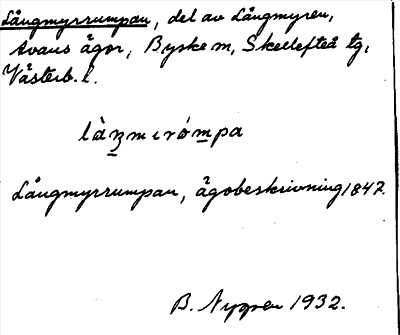 Långmyrrumpan, del av Långmyren,
Avans ägor, Byske m, Skellefteå tg,
Västerb. l.
làŋmıró̱mpa
Långmyrrumpan, ägobeskrivning 1847.
B. Nygren 1932.